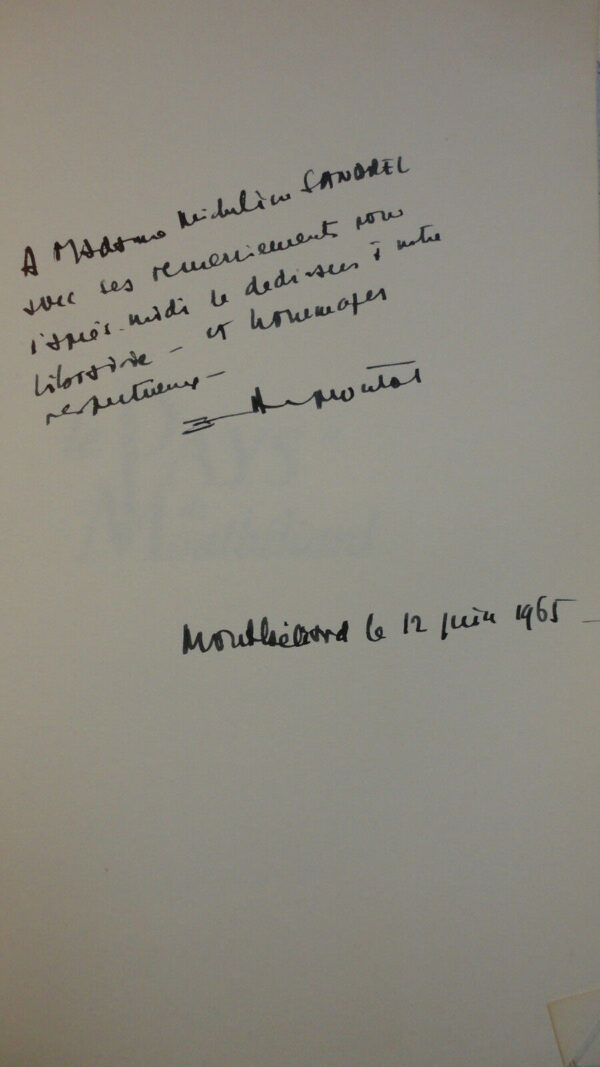 A Madame Micheline SANDREL
avec ses remerciements pour
l'après-midi de dédicaces à notre
librairie - et hommages
respectueux -
Montbéliard le 12 juin 1965
PAYS
Montbéliard